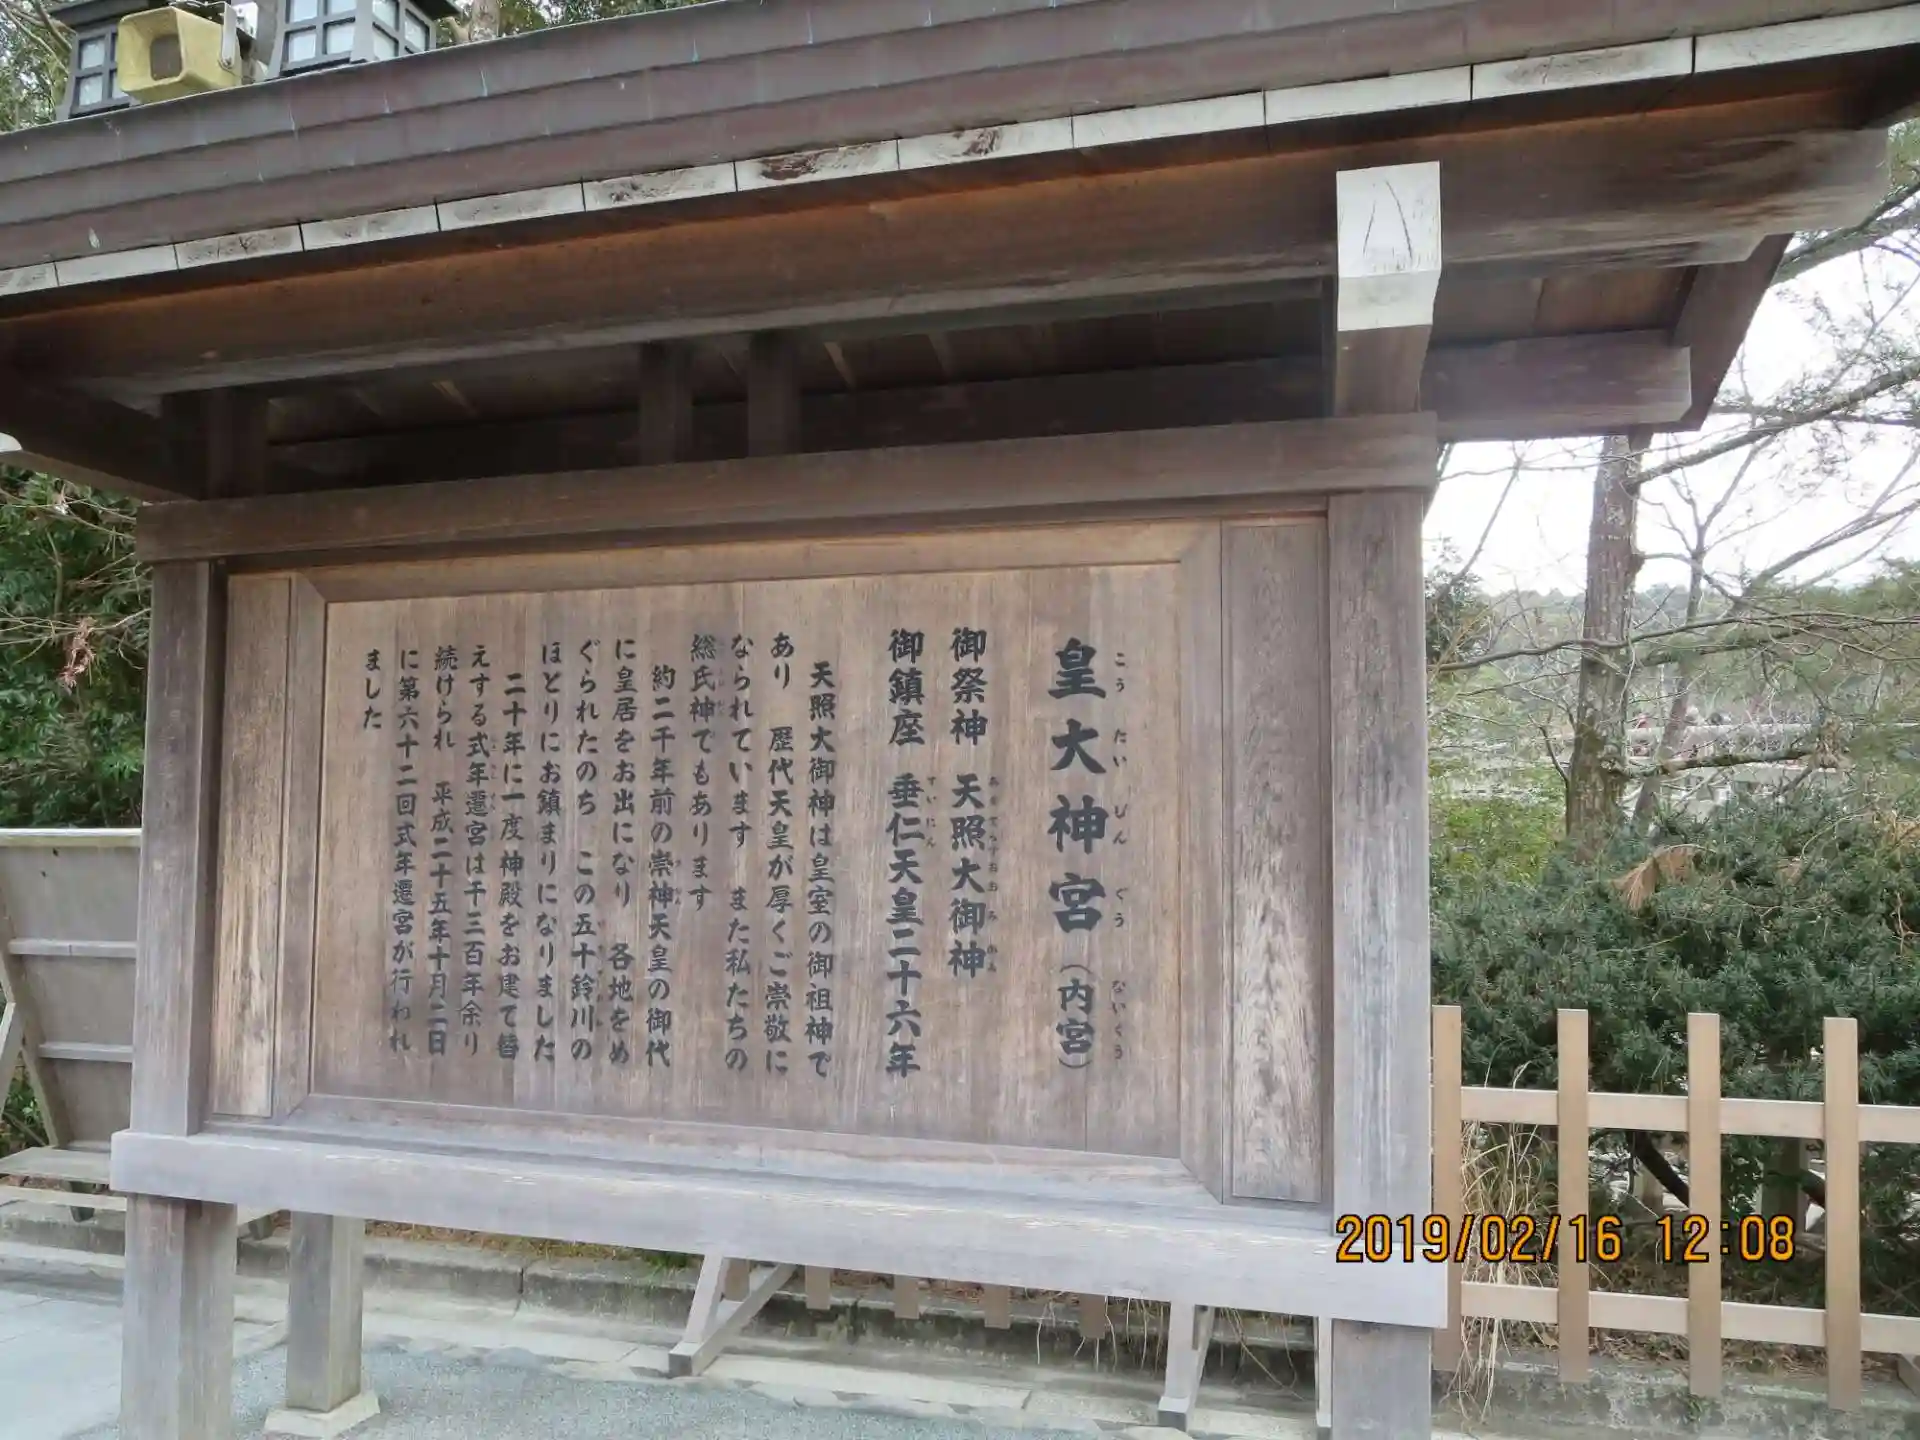 皇大神宮（内宮）
こうたいじんぐう ないくう
御祭神 天照大御神
あまてらすおおみかみ
御鎮座 垂仁天皇二十六年
すいにん
天照大御神は皇室の御祖神で
あり 歴代天皇が厚くご崇敬に
なられています また私たちの
総氏神でもあります
約二千年前の崇神天皇の御代
に皇居をお出になり 各地をめ
ぐられたのち この五十鈴川の
ほとりにお鎮まりになりました
二十年に一度神殿をお建て替
えする式年遷宮は千三百年余り
続けられ 平成二十五年十月二日
に第六十二回式年遷宮が行われ
ました
2019/02/16 12:08